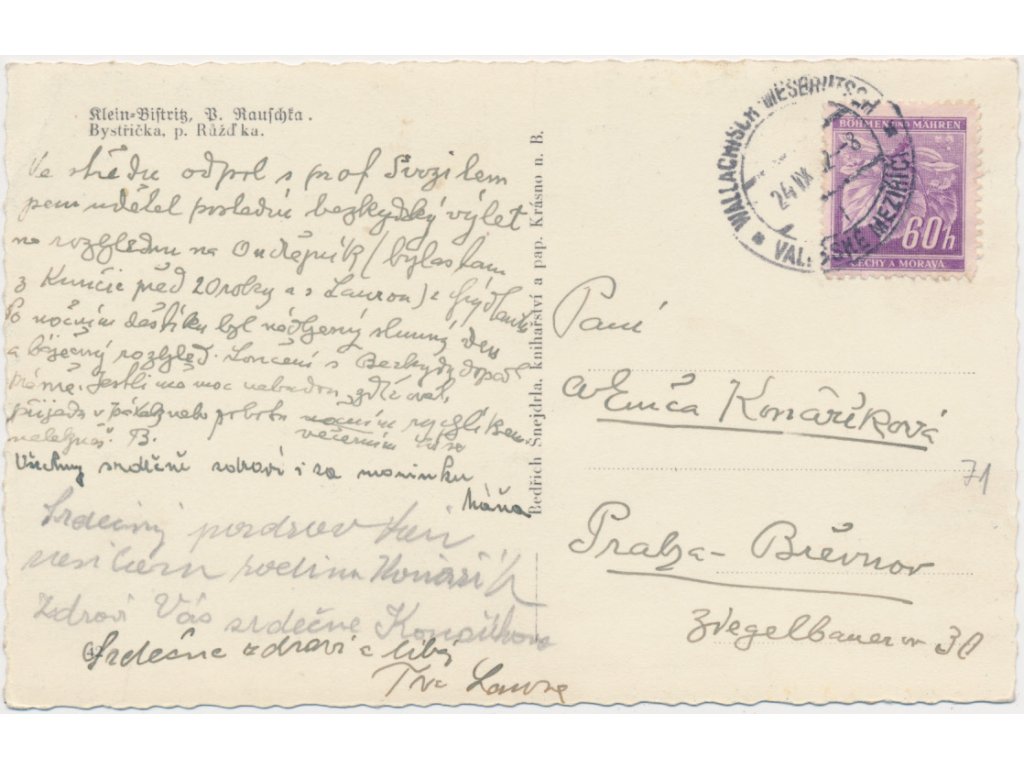 Klein-Bistritz, P. Rauschka.
Bystřička, p. Růžďka.
Ve středu odpol s prof Svozilem
jsem udělal poslední bezkydský výlet
na rozhlednu na Ondřejník (bylas tam
z Kunčic před 20 roky a s Laurou) z Frýdlantu
Po nočním deštíku byl nádherný slunný den
a báječný rozhled. Loučení s Bezkydy dopadlo
Jestli mě moc nebudou
přijedu v nebo v sobotu nočním rychlíkem
večerním
B.
Všechny srdečně zdraví i za maminku
Máňa
Srdečný pozdrav
rodina Konařík
Zdraví Vás srdečně Konaříkova
Srdečně zdraví a líbá
Tvá Laura
Bedřich Snejdrla, knihařství a pap. Krásno n. B.
WALLACHISCH MESERITSCH
24 IX 2-8
VALAŠSKÉ MEZIŘÍČÍ
BÖHMEN UND MÄHREN
60h
ČECHY A MORAVA
Paní
Konaříková
71
Praha - Břevnov
Ziegelbauerova 30